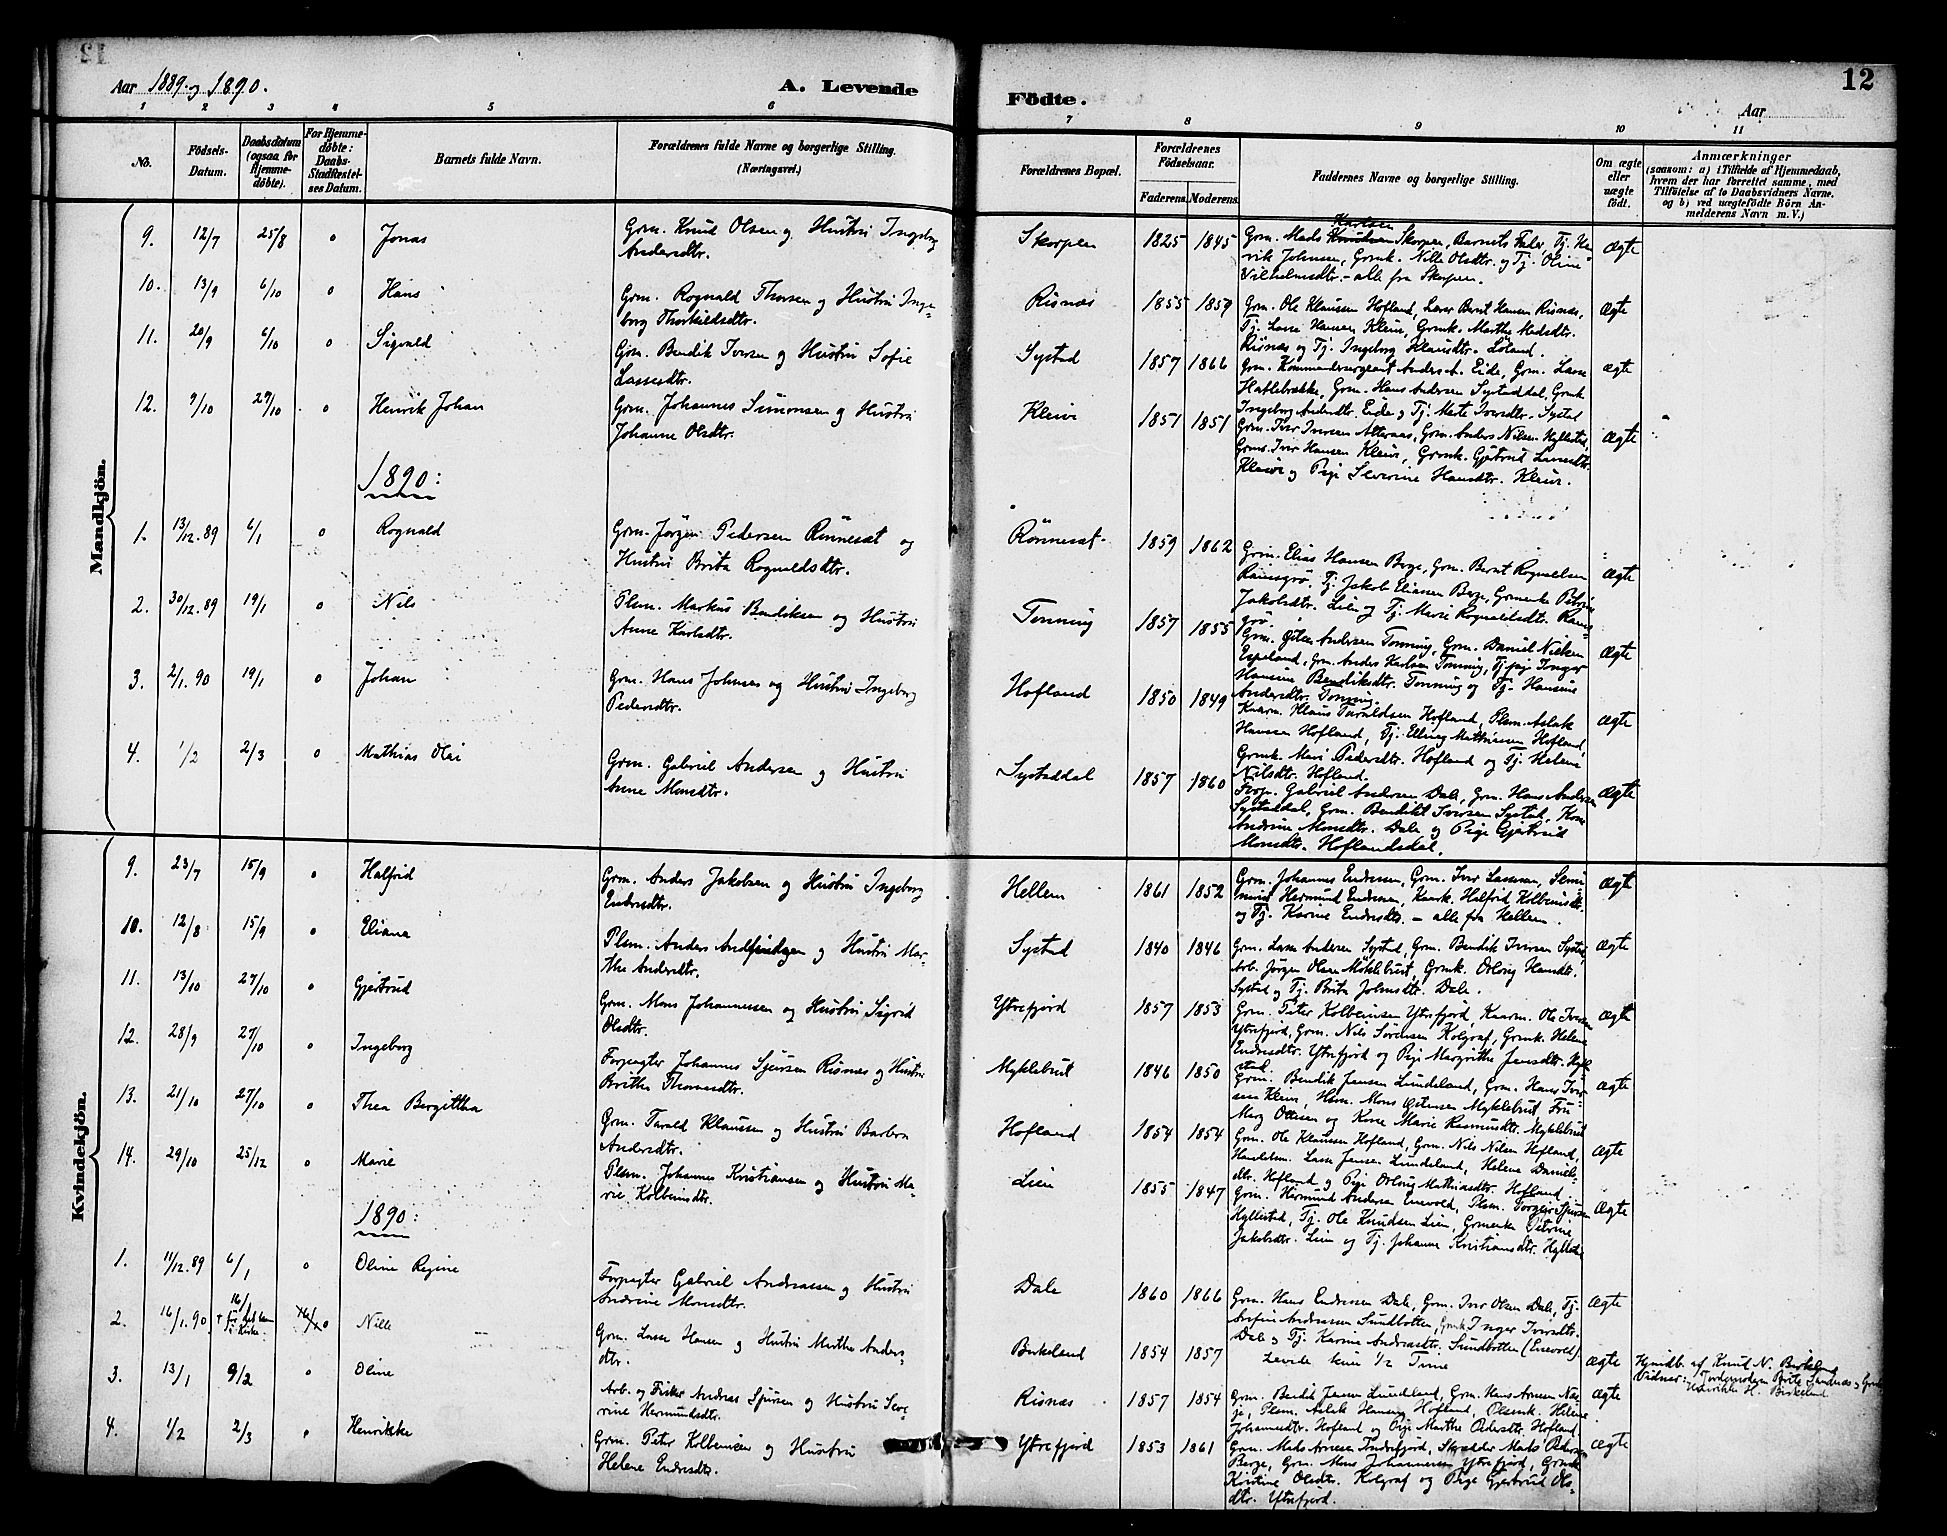 12
Aar 1889 og 1890.
A. Levende
Födte.
Aar
1 2 3 4 5 6 7 8 9 10 11
No.
Födsels-Datum.
Daabsdatum (ogsaa for Hjemmedöbte).
For Hjemmedöbte: Daabs-Stadfæstelses Datum.
Barnets fulde Navn.
Forældrenes fulde Navne og borgerlige Stilling.
(Næringsvei.)
Forældrenes Bopæl.
Forældrenes Födselsaar.
Faderens. Moderens.
Faddernes Navne og borgerlige Stilling.
Om ægte eller uægte födt.
Anmærkninger
(saasom: a) i Tilfælde af Hjemmedaab,
hvem der har forrettet samme, med
Tilföielse af to Daabsvidners Navne.
og b) ved uægtefödte Börn An-
melderens Navn m. V.)
Mandkjön.
9. 12/7 25/8 0 Jonas Grm. Knud Olsen og Hustru Ingeborg
Andersdtr.
Skorpen 1825 1845 Grm. Mads Karlsen Skorpen, Barnets Fader, Tj. Hen-
rik Johnsen, Grmk. Nille Olsdtr. og Tj. Oline
Vilhelmsdtr. – alle fra Skorpen.
Ægte
10. 13/9 6/10 0 Hans Grm. Rognald Thorsen og Hustru Inge-
borg Thorkildsdtr.
Risnæs 1855 1859 Grm. Ole Klausen Hofland, Lærer Bernt Hansen Risnæs,
Tj. Lasse Hansen Kleiv, Grmk. Marthe Madsdtr.
Risnæs og Tj. Ingeborg Klausdtr. Løland.
Ægte
11. 20/9 6/10 0 Sigvald Grm. Bendik Iversen og Hustru Sofie
Lassesdtr.
Systad 1857 1866 Grm. Kommandersergeant Anders A. Eide, Grm. Lasse
Hatlebrække, Grm. Hans Andersen Systaddal, Grmk.
Ingeborg Andersdtr. Eide og Tj. Marte Iversdtr. Systad
Ægte
12. 9/10 27/10 0 Henrik Johan Grm. Johannes Simonsen og Hustru
Johanne Olsdtr.
Kleiv 1857 1851 Grm. Iver Iversen Alteraas, Grm. Anders Nilsen Hyllestad,
Grms. Iver Hansen Kleiv, Grmk. Gjertrud Lassesdtr.
Kleiv og Pige Severine Hansdtr. Kleiv.
Ægte
1890:
1. 13/12.89 6/1 0 Rognald Grm. Jørgen Pedersen Rønneset og
Hustru Brita Rognaldsdtr.
Rønneset. 1859 1862 Grm. Elias Hansen Berge, Grm. Bernt Rognaldsen
Ramsgrø, Tj. Jakob Eliassen Berge, Grmenke Petrine
Jakobsdtr. Lien og Tj. Marie Rognaldsdtr. Rams-
grø.
Ægte
2. 30/12.89 19/1 0 Nils Plsm. Markus Bendiksen og Hustru
Anne Karlsdtr.
Tonning 1857 1855 Grm. Østen Andersen Tonning, Grm. Daniel Nielsen
Espeland, Grm. Anders Karlsen Tonning, Tj.pige Inger
Hansine Bendiksdtr. Tonning og Tj. Hansine
Andersdtr. Tonning.
Ægte
3. 2/1.90 19/1 0 Johan Grm. Hans Johnsen og Hustru Ingeborg
Pedersdtr.
Hofland 1850 1849 Kaarm. Klaus Taraldsen Hofland, Plsm. Aslak
Hansen Hofland, Tj. Elling Mathiassen Hofland,
Grmk. Mari Pedersdtr. Hofland og Tj. Helene
Nilsdtr. Hofland.
Ægte
4. 1/2 2/3 0 Mathias Olai Grm. Gabriel Andersen og Hustru
Anne Monsdtr.
Systaddal 1857 1860 Forp. Gabriel Andersen Dale, Grm. Hans Andersen
Systaddal, Grm. Bendikt Iversen Systad, Kone
Andrine Monsdtr. Dale og Pige Gjertrud
Monsdtr. Hoflandsdal.
Ægte
Kvindekjön.
9. 23/7 15/9 0 Halfrid Grm. Anders Jakobsen og Hustru Ingeborg
Endresdtr.
Hellem 1861 1852 Grm. Johannes Endresen, Grm. Iver Lassesen, Semi-
narist Hermund Endresen, Kaark. Halfrid Kolbeinsdtr.
og Tj. Karine Endresdtr. – alle fra Hellem.
Ægte
10. 12/8 15/9 0 Eliana Plsm. Anders Andfindsen og Hustru Mar-
the Andersdtr.
Systad 1840 1846 Grm. Lasse Andersen Systad, Grm. Bendik Iversen Systad,
Arb. Jørgen Olsen Møklebust, Grmk. Orlaug Hansdtr.
Systad og Tj. Brita Johnsdtr. Dale.
Ægte
11. 13/10 27/10 0 Gjertrud Grm. Mons Johannessen og Hustru Sigrid
Olsdtr.
Ytrefjord 1857 1853 Grm. Peter Kolbeinsen Ytrefjord, Kaarm. Ole Iversen
Ytrefjord, Grm. Nils Sørensen Kolgraf, Grmk. Helene
Endresdtr. Ytrefjord og Pige Margrithe Jensdtr. Hylle-
stad.
Ægte
12. 28/9 27/10 0 Ingeborg Forpagter Johannes Sjursen Risnæs og Hustru
Brithe Thomasdtr.
Myklebust 1846 1850 Grm. Bendik Jensen Lundeland, Grm. Hans Iver-
sen Kleiv, Hsm. Mons Østensen Myklebust, Fru
Marg Ottesen og Kone Marie Rasmusdtr. Myklebust
Ægte
13. 21/10 27/10 0 Thea Bergittha Grm. Tarald Klaussen og Hustru Barbra
Andersdtr.
Hofland 1854 1854 Grm. Ole Klaussen Hofland, Grm. Nils Nilsen Hofland,
Handelsm. Lasse Jensen Lundeland, Helene Daniels-
dtr. Hofland og Pige Orlaug Mathiasdtr. Hofland
Ægte
14. 29/10 25/12 0 Marie Plsm. Johannes Kristiansen og Hustru Ma-
rie Kolbeinsdtr.
Lien 1855 1847 Grm. Hermund Andersen Enevold, Plsm. Torgeir Sjursen
Hyllestad, Tj. Ole Knudsen Lien, Grmenke Petrine
Jakobsdtr. Lien og Tj. Johanne Kristiansdtr. Hyllestad
Ægte
1890:
1. 11/12.89 6/1 0 Oline Regine Forpagter Gabriel Andreassen og Hustru
Andrine Monsdtr.
Dale 1860 1866 Grm. Hans Endresen Dale, Grm. Iver Olsen Dale, Tj.
Andreassen Sundbotten, Grmk. Inger Iversdtr.
Dale og Tj. Karine Andreasdtr. Sundbotten (Enevold)
Ægte
2. 16/1.90 16/1 † Før det kom til Kirke. 0 Nille Grm. Lasse Hansen og Hustru Marthe Anders-
dtr.
Birkeland 1854 1857 Levede kun 1/2 Time
Ægte Hjmdb. af Knut N. Birkeland
Vidner: Jordemoderen Brite Sandnæs og Grmk.
Henrikke H. Birkeland
3. 13/1 9/2 0 Oline Arb. og Fisker Andreas Sjursen og Hustru Seve-
rine Hermundsdtr.
Risnæs 1857 1854 Grm. Bendik Jensen Lundeland, Grm. Hans Arnesen Næs-
je, Plsm. Aslak Hansen Hofland, Olsenk. Helene
Johannesdtr. Hofland og Pige Marthe Pedersdtr. Hofland.
Ægte
4. 1/2 2/3 0 Henrikke Grm. Peter Kolbeinsen og Hustru
Helene Endresdtr.
Ytrefjord 1853 1861 Grm. Mads Arnesen Indrefjord, Skrædder Mads Pedersen
Berge, Grm. Mons Johannessen Ytrefjord, Grmk.
Kristine Olsdtr. Kolgraf og Pige Gjertrud Ols-
dtr. Ytrefjord.
Ægte